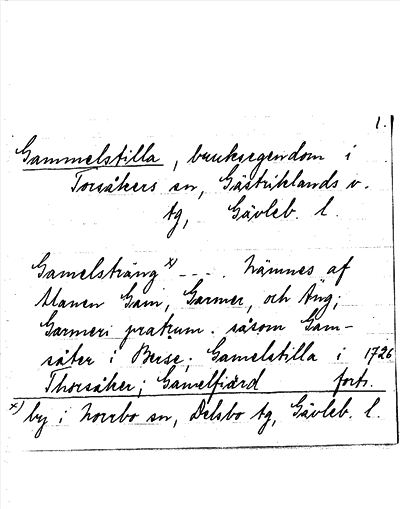 1.
Gammelstilla, bruksegendom i
Torsåkers sn, Gästriklands v.
tg, Gävleb. l.
Gamelsträng x) - - - . Nämnes af
Manen Gam, Garmer, och Äng;
Garmeri pratum. såsom Gam-
säter i Berse; Gamelstilla i 1726
Thorsåker; Gamelfiärd forts.
x) by i Norrbo sn, Delsbo tg, Gävleb. l.